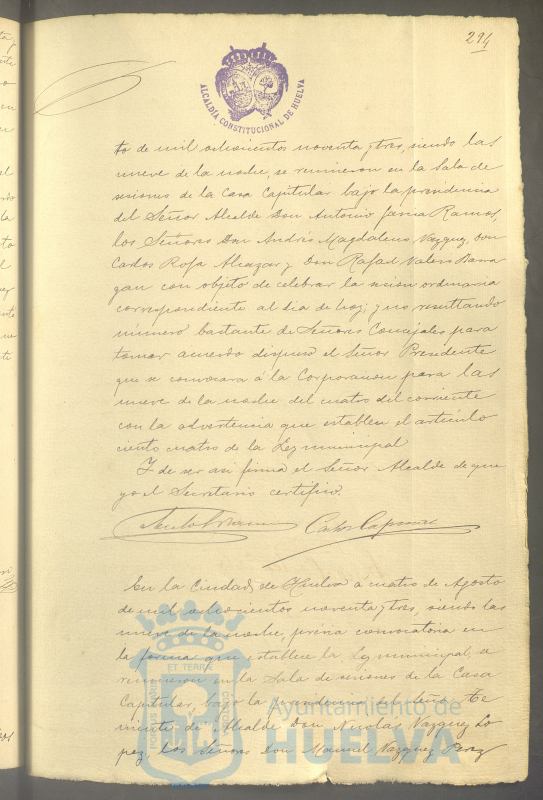 294
ALCALDÍA CONSTITUCIONAL DE HUELVA
to de mil ochocientos noventa y tres, siendo las
nueve de la noche, se reunieron en la Sala de
sesiones de la Casa Capitular bajo la presidencia
del Señor Alcalde Don Antonio Ramos,
los Señores Don Andrés Magdaleno Vazquez, Don
Carlos Rofa Alcazar y Don Rafael Valero Barra
gan con objeto de celebrar la sesion ordinaria
correspondiente al dia de hoy; y no resultando
número bastante de Señores Concejales para
tomar acuerdo dispuso el Señor Presidente
que se convocara á la Corporacion para las
nueve de la noche del cuatro del corriente
con la advertencia que establece el artículo
ciento cuatro de la Ley municipal
Y de ser asi firma el Señor Alcalde de que
yo el Secretario certifico.
En la Ciudad de Huelva a cuatro de Agosto
de mil ochocientos noventa y tres, siendo las
nueve de la noche, previa convocatoria en
la forma que establece la Ley municipal, se
reunieron en la Sala de sesiones de la Casa
Capitular, bajo la presidencia del Señor Te
niente de Alcalde Don Nicolas Vazquez Lo
pez, los Señores Don Manuel Vazquez Perez
Ayuntamiento de
HUELVA